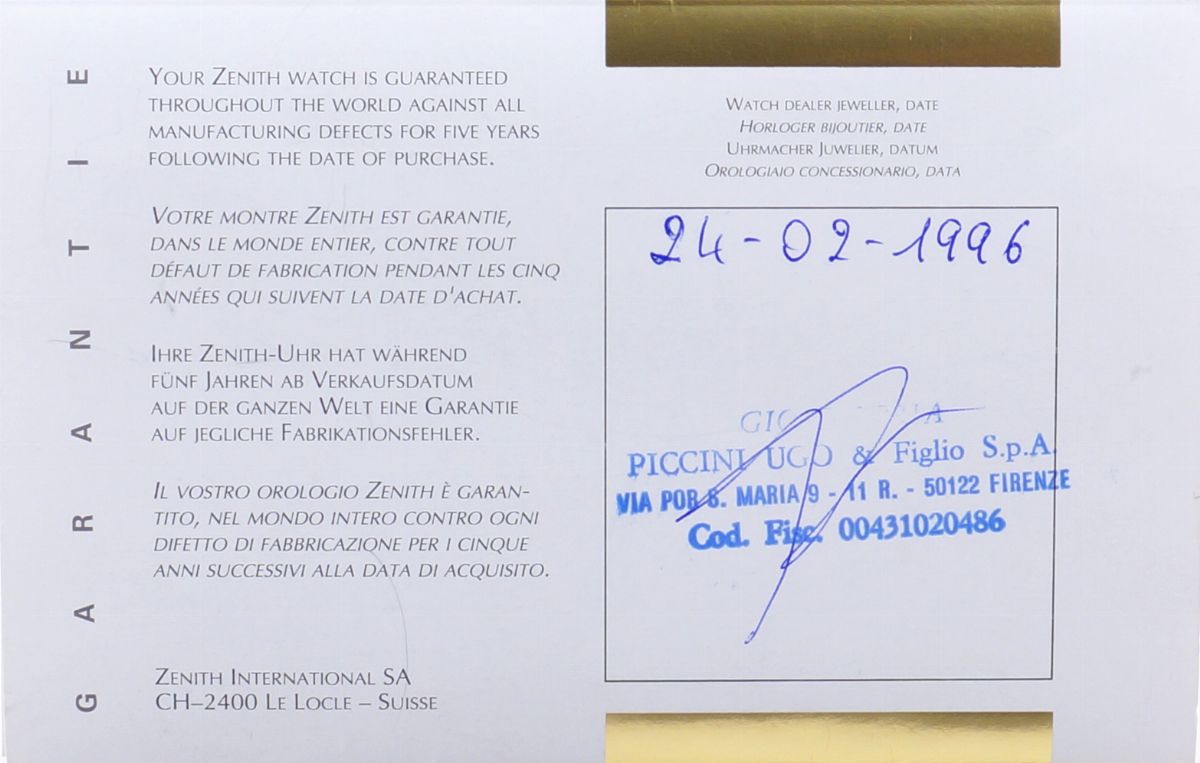 GARANTIE
YOUR ZENITH WATCH IS GUARANTEED
THROUGHOUT THE WORLD AGAINST ALL
MANUFACTURING DEFECTS FOR FIVE YEARS
FOLLOWING THE DATE OF PURCHASE.
VOTRE MONTRE ZENITH EST GARANTIE,
DANS LE MONDE ENTIER, CONTRE TOUT
DÉFAUT DE FABRICATION PENDANT LES CINQ
ANNÉES QUI SUIVENT LA DATE D'ACHAT.
IHRE ZENITH-UHR HAT WÄHREND
FÜNF JAHREN AB VERKAUFSDATUM
AUF DER GANZEN WELT EINE GARANTIE
AUF JEGLICHE FABRIKATIONSFEHLER.
IL VOSTRO OROLOGIO ZENITH È GARAN-
TITO, NEL MONDO INTERO CONTRO OGNI
DIFETTO DI FABBRICAZIONE PER I CINQUE
ANNI SUCCESSIVI ALLA DATA DI ACQUISITO.
ZENITH INTERNATIONAL SA
CH–2400 LE LOCLE – SUISSE
WATCH DEALER JEWELLER, DATE
HORLOGER BIJOUTIER, DATE
UHRMACHER JUWELIER, DATUM
OROLOGIAIO CONCESSIONARIO, DATA
24-02-1996
PICCINI UGO & Figlio S.p.A.
VIA POR S. MARIA 9 - 11 R. - 50122 FIRENZE
Cod. Fisc. 00431020486